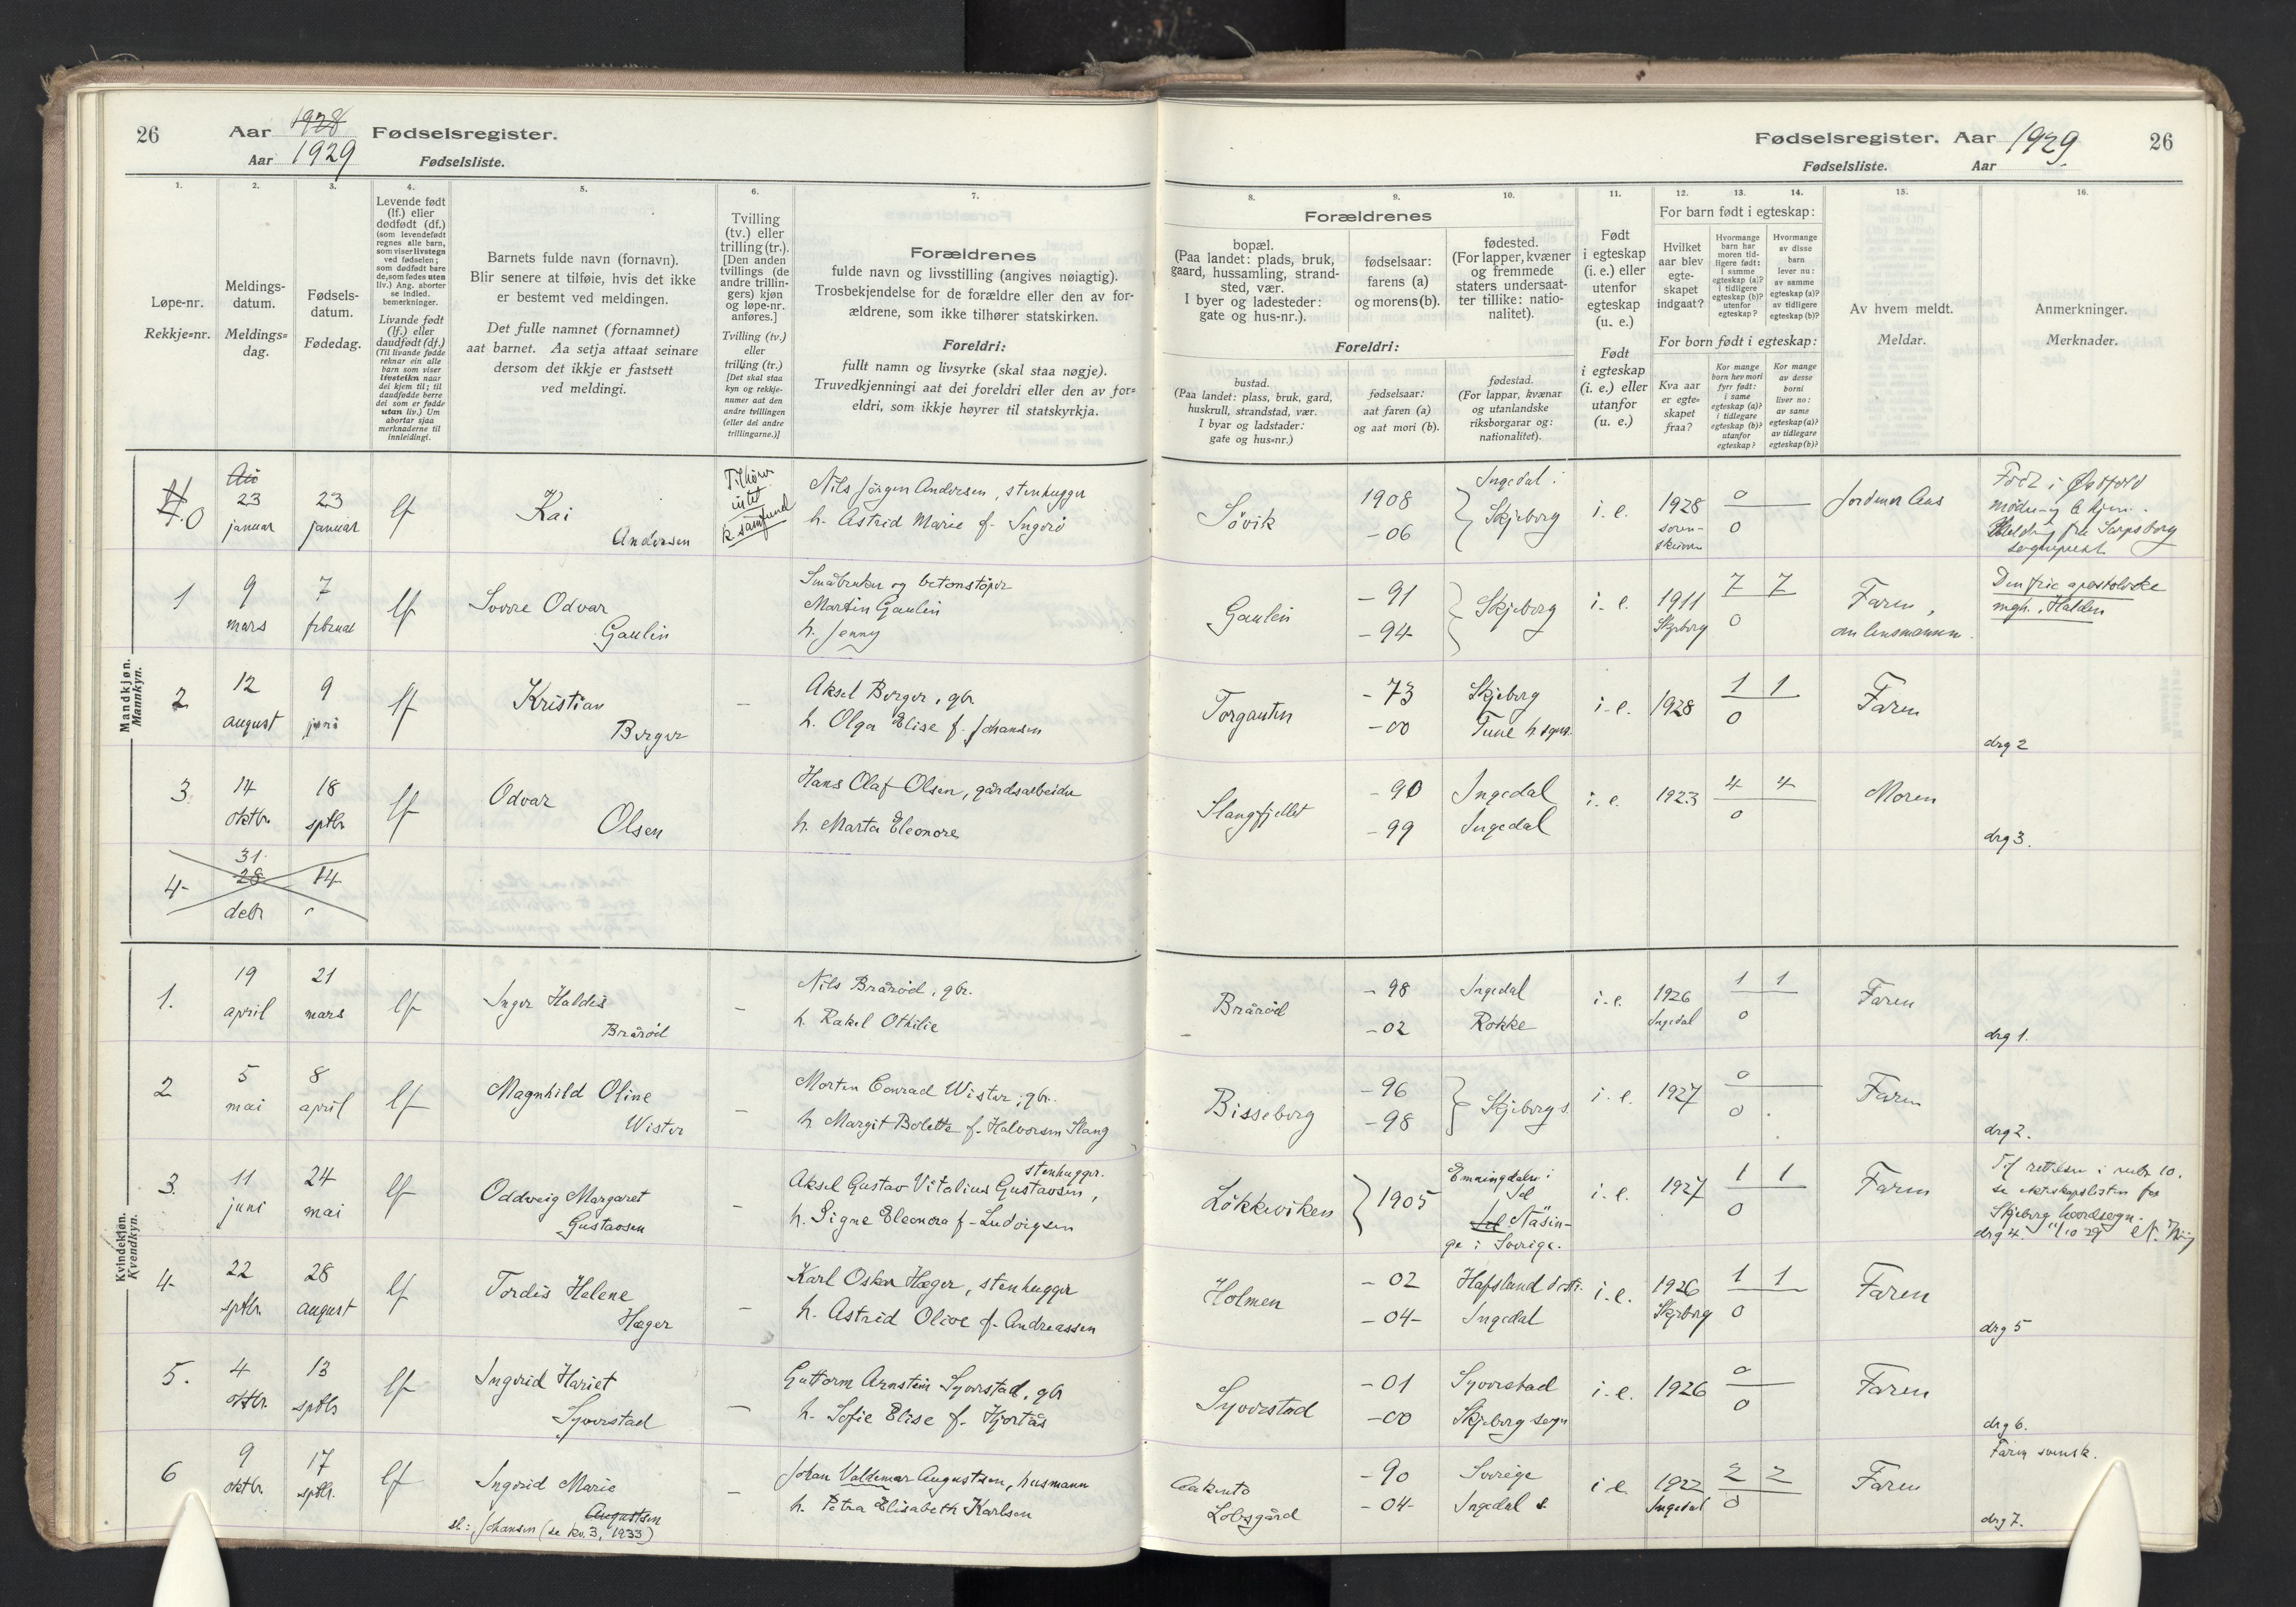 26
Aar 1928 Fødselsregister.
Aar 1929 Fødselsliste.
1.
2.
3.
4.
5.
6.
7.
Løpe-nr.
Rekkje=nr.
Meldings-
datum.
Meldings=
dag.
Fødsels-
datum.
Fødedag.
Levende født
(lf.) eller
dødfødt (df.)
(som levendefødt
regnes alle barn,
som viser livstegn
ved fødselen;
som dødfødt bare
de, som fødes uten
liv.) Ang. aborter
se indled.
bemerkninger.
Livande født
(lf.) eller
daudfødt (df.)
(Til livande fødde
reknar ein alle
barn som viser
livsteikn naar
dei kjem til; til
daudfødde berre
dei som er fødde
utan liv.) Um
abortar sjaa
merknaderne til
innleidingi.
Barnets fulde navn (fornavn).
Blir senere at tilføie, hvis det ikke
er bestemt ved meldingen.
Det fulle namnet (fornamnet)
aat barnet. Aa setja attaat seinare
dersom det ikkje er fastsett
ved meldingi.
Tvilling
(tv.) eller
trilling (tr.).
[Den anden
tvillings (de
andre trillin-
gers) kjøn
og løpe-nr.
anføres.]
Tvilling (tv.)
eller
trilling (tr.)
[Det skal staa
kyn og rekkje-
numer aat den
andre tvillingen
(eller dei andre
trillingarne.)]
Forældrenes
fulde navn og livsstilling (angives nøiagtig).
Trosbekjendelse for de forældre eller den av for-
ældrene, som ikke tilhører statskirken.
Foreldri:
fullt namn og livsyrke (skal staa nøgje).
Truvedkjenningi aat dei foreldri eller den av for=
eldri, som ikkje høyrer til statskyrkja.
Mandkjøn.
Mannkyn.
0
23
januar
23
januar
lf
Kai
Andersen
Tilhører
intet
k. samfund
Nils Jörgen Andersen, stenhugger
h. Astrid Marie f.
1
9
mars
7
februar
lf
Sverre Odvar
Gaulin
Småbruker og betonstöper
Martin Gaulin
h. Jenny
2
12
august
9
juni
lf
Kristian
Berger
–
Aksel Berger, gbr
h. Olga Elise f. Johansen
3
14
oktbr.
18
sptbr
lf
Odvar
Olsen
Hans Olaf Olsen, gårdsarbeider
h. Marta Eleonore
4
31
28
debr
14
Kvindekjøn.
Kvendkyn.
1.
19
april
21
mars
lf
Inger Haldis
Bråröd
–
Nils Bråröd, gbr.
h. Rakel Othilie
2
5
mai
8
april
lf
Magnhild Oline
Wister
–
Morten Conrad Wister, gbr.
h Margit Bolette f. Halvorsen Stang
3.
11
juni
24
mai
lf
Oddveig Margaret
Gustavsen
–
stenhugger.
Aksel Gustav Vitalius Gustavsen,
h. Signe Eleonora f. Ludvigsen
4
22
sptbr.
28
august
lf
Tordis Helene
Hæger
–
Karl Oskar Hæger, stenhugger
h. Astrid Olive f. Andreassen
5.
4
oktbr.
13
sptbr
lf
Ingerid Hariet
Syverstad
–
Guttorm Arnstein Syverstad, gbr
h. Sofie Elise f. Hjortås
6
9
oktbr.
17
sptbr.
lf
Ingerid Marie
Augustsen
sl: Johansen (se kv. 3, 1933)
–
Johan Valdemar Augustsen, husmann
h. Petra Elisabeth Karlsen
Fødselsregister. Aar 1929
26
Fødselsliste. Aar
8.
9.
10.
11.
12.
13.
14.
15.
16.
Forældrenes
bopæl.
(Paa landet: plads, bruk,
gaard, hussamling, strand-
sted, vær.
I byer og ladesteder:
gate og hus-nr.).
fødselsaar:
farens (a)
og morens (b).
fødested.
(For lapper, kvæner
og fremmede
staters undersaat-
ter tillike: natio-
nalitet).
Foreldri:
bustad.
(Paa landet: plass, bruk, gard,
huskrull, strandstad, vær.
I byar og ladstader:
gate og hus=nr.)
fødselsaar:
aat faren (a)
og aat mori (b).
fødestad.
(For lappar, kvænar
og utanlandske
riksborgarar og:
nationalitet).
Født
i egteskap
(i. e.) eller
utenfor
egteskap
(u. e.)
Født
i egteskap
(i. e.) eller
utanfor
(u. e.)
For barn født i egteskap:
Hvilket
aar blev
egte-
skapet
indgaat?
Hvormange
barn har
moren tid-
ligere født:
i samme
egteskap (a)?
i tidligere
egteskap (b)?
utenfor
egteskap?
Hvormange
av disse
barn
lever nu:
av samme
egteskap (a)?
av tidligere
egteskap (b)?
For born født i egteskap:
Kva aar
er egte=
skapet
fraa?
Kor mange
born hev mori
fyrr født:
i same
egteskap (a)?
i tidlegare
egteskap (b)?
utanfor
egteskap?
Kor mange
av desse
borni
liver no:
av same
egteskap (a)?
av tidlegare
egteskap (b)?
Av hvem meldt.
Meldar.
Anmerkninger.
Merknader.
Søvik
1908
– 06
Ingedal i
Skjeberg
i. e.
1928
soren-
skriver
0
0
Jordmor Aas
Født i Østfold
Melding fra Sarpsborg
Gaulin
– 91
– 94
Skjeberg
i. e.
1911
Skjeberg
7 7
0
Faren,
om lensmannen
Den frie apostoliske
mgh. Halden
Torgauten
– 73
– 00
Skjeberg
Tune h. sogn
i. e.
1928
1 1
0
Faren
drg 2
Slangfjellet
– 90
– 99
Ingedal
Ingedal
i. e.
1923
4 4
0
Moren
drg 3.
Bråröd
– 98
– 02
Ingedal
Rokke
i. e.
1926
Ingedal
1 1
0
Faren
drg 1.
Bisseberg
– 96
– 98
Skjeberg s.
i. e.
1927
0
0
Faren
drg 2.
Lökkeviken
1905
Enningdalen i
Id
Näsin-
ge i Sverige.
i. e.
1927
1 1
0
Faren
rettelse i rubr 10.
se ekteskapslisten for
Skjeberg hovedsogn.
drg 4. 11/10 29
Holmen
– 02
– 04
Hafslund
Ingedal
i. e.
1926
Skjeberg
1 1
0
Faren
drg 5
Syverstad
– 01
– 00
Syverstad
Skjeberg sogn
i. e.
1926
0
0
Faren
drg 6.
Lobsgård
– 90
– 04
Sverige
Ingedal s.
i e
1922
Ingedal
2 2
0
Faren
Faren svensk.
drg 7.